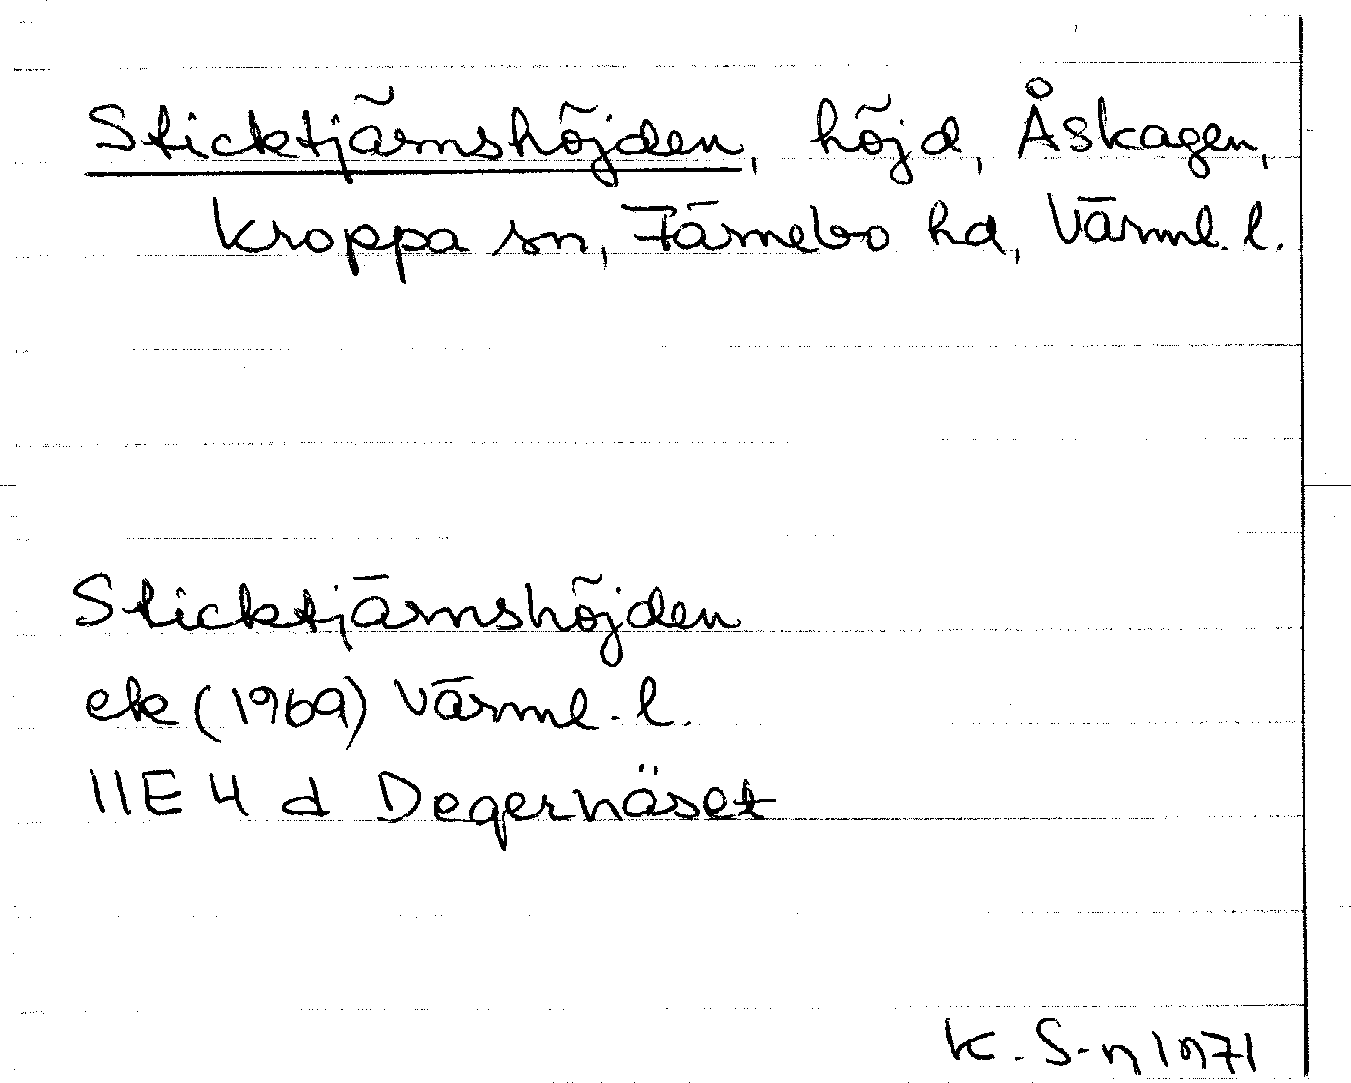 Sticktjärnshöjden, höjd, Åskagen,
Kroppa sn, Färnebo hd, Värml. l.
Sticktjärnshöjden
ek (1969) Värml. l.
11E 4 d Degernäset
K. S-n 1971